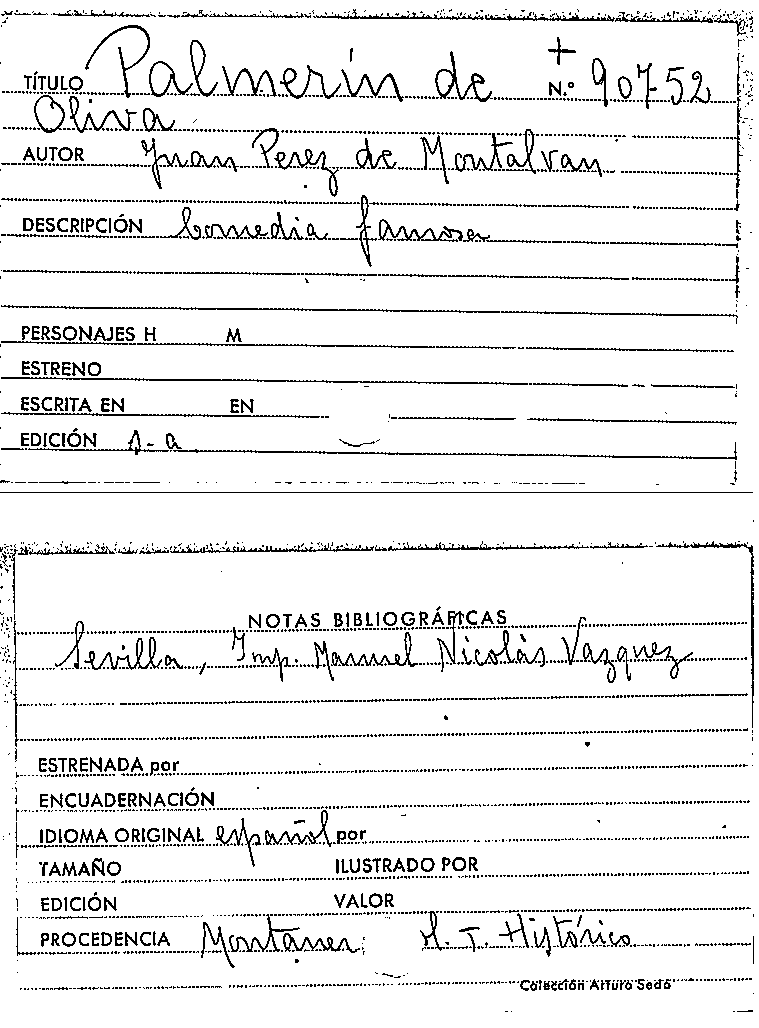 TÍTULO Palmerín de + N.º 90752
Oliva
AUTOR Juan Perez de Montalvan
DESCRIPCIÓN Comedia famosa
PERSONAJES H M
ESTRENO
ESCRITA EN EN
EDICIÓN s-a
NOTAS BIBLIOGRÁFICAS
Sevilla, Imp. Manuel Nicolás Vazquez
ESTRENADA por
ENCUADERNACIÓN
IDIOMA ORIGINAL español por
TAMAÑO ILUSTRADO POR
EDICIÓN VALOR
PROCEDENCIA Montaner T. Histórico
Colección Arturo Sedó